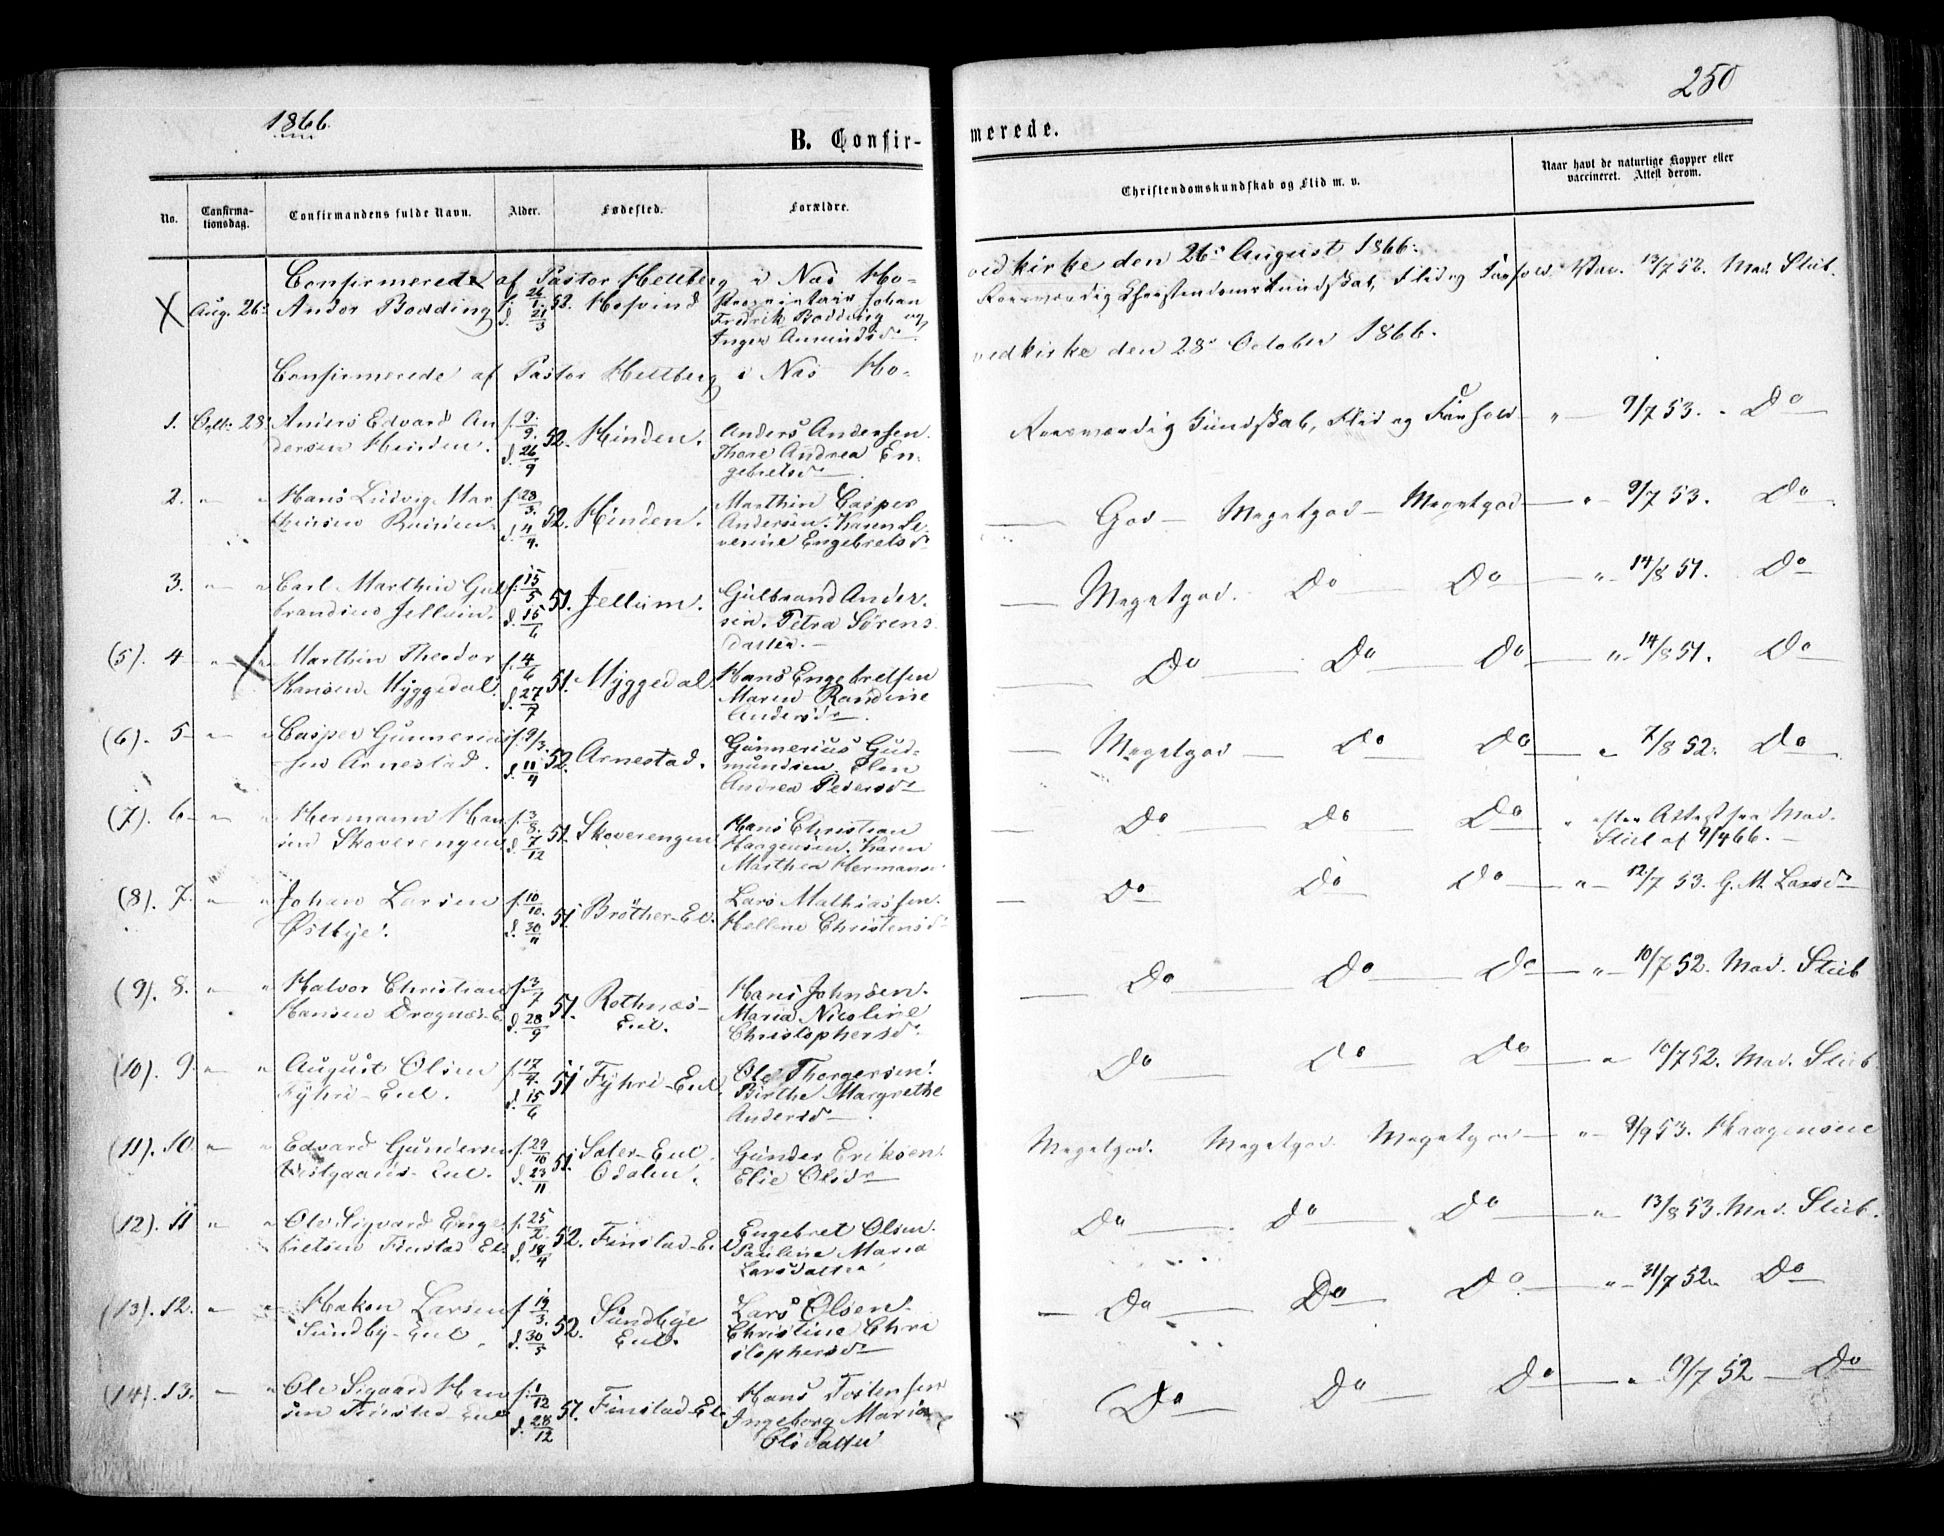 1866
250
B. Confir-
merede.
No.
Confirma-
tionsdag.
Confirmandens fulde Navn.
Alder.
Fødested.
Forældre.
Christendomskundskab og Flid m. v.
Naar havt de naturlige Kopper eller
vaccineret. Attest derom.
Confirmerede af Pastor Hellberg i Næs Ho-
vedkirke den 26. August 1866.
X Aug. 26. Andor Bodding f. 24/1. d. 21/3 52. Hofvind Proprietair Johan
Fredrik Bodding og
Inger Amundsd.
Roesværdig Christendomskundskab, Flid og Forhold. Vac. 13/7 52. Mad. Stub.
Confirmerede af Pastor Hellberg i Næs Ho-
vedkirke den 28. October 1866.
1. Octb. 28. Anders Edvard An
dersen Hinden. f. 9/9. d. 26/9 52. Hinden. Anders Andersen.
Thore Andrea En-
gebretsd.
Roesværdig Kundskab, Flid og Forhold — " — 9/7 53. Do
2. " " Hans Ludvig Mar
thinsen f. 28/3. d. 4/4. 52. Hinden. Marthin Casper
Andersen. Karen Se-
verine Engebretsd.
God — Megetgod — Megetgod — " — 9/7 53. Do
3. " " Carl Marthin Gul
brandsen Jellum. f. 15/5 d. 15/6 51. Jellum. Gulbrand Ander-
sen. Petra Sörens
datter.
Megetgod. Do Do " — 14/8 51. Do
(5). 4 " " Marthin Theodor
Hansen Myggedal. f. 4/6 d. 27/7 51. Myggedal. Hans Engebretsen
Maren Randine
Andersd.
Do Do Do " — 14/8 51. Do
(6). 5 " " Casper Gunnerius
sen Arnestad. f. 9/3. d. 11/4 52. Arnestad. Gunnerius Gud-
mundsen. Elen
Andrea Pedersd.
Megetgod — Do Do " 7/8 52. Do
(7). 6 " " Hermann Han
sen Skoverengen f. 3/8. d. 7/12 51. Skoverengen Hans Christian
Haagensen. Karen
Marthea Hermans.
Do Do Do " efter Attest fra Mad.
Stub af 9/4 66.
(8). 7. " " Johan Larsen
Østbye. f. 10/10. d. 30/11 51. Bröther-Ei. Lars Mathiassen.
Hellene Christensd.
Do Do Do " — 12/7 53. G. M. Larsd.
(9). 8. " " Halvor Christian
Hansen Drognæs-E f. 3/7 d. 28/9 51. Rothnæs-
Eie. Hans Johnsen.
Maria Nicoline
Christophersd.
Do Do Do " — 10/7 52. Mad. Stub
(10). 9. " " August Olsen
Fyhri-Eie. f. 17/4. d. 15/6 51 Fyhri-Eie. Ole Thorgersen.
Birthe Margrethe
Andersd.
Do Do Do " 10/7 52. Mad. Stub.
(11). 10. " " Edvard Gundersen
Vestgaard-Eie. f. 29/10 d. 23/11 51 Sater-Eie
Odalen. Gunder Eriksen.
Elie Olsd.
Megetgod. Megetgod. Megetgod — " — 9/9 53. Haagensen
(12). 11 " " Ole Sigvard Enge-
bretsen Finstad Ei f. 25/2. d. 18/4 52. Finstad-E. Engebret Olsen.
Pauline Maria
Larsdatter
Do Do Do " 13/8 53. Mad. Stub.
(13). 12. " " Haken Larsen
Sundby-Eie. f. 19/3. d. 30/5 52. Sundbye
Eie. Lars Olsen.
Christine Chri
stophersd.
Do Do Do " — 31/7 52. Do
(14). 13. " " Ole Sigvard Han
sen Finstad-Eie f. 1/12 d. 28/12 51. Finstad-Ei Hans Tostensen
Ingeborg Maria
Olsdatter
Do Do Do " 19/7 52 — Do